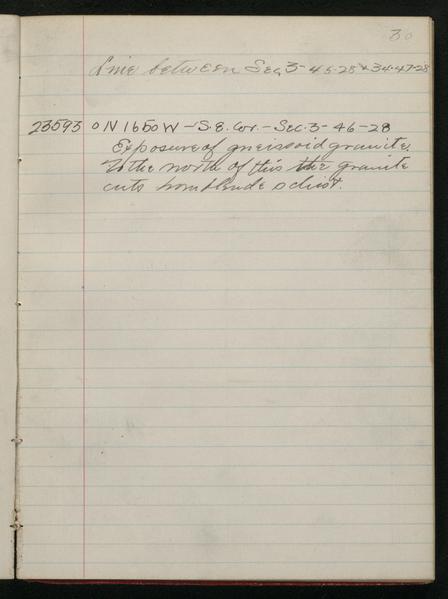 30
Line between Sec. 3-45-28 & 34-47-28
23593 0 N 1650 W - S.E. Cor. - Sec. 3-46-28
Exposure of gneissoid granite.
To the north of this the granite
cuts hornblende schist.